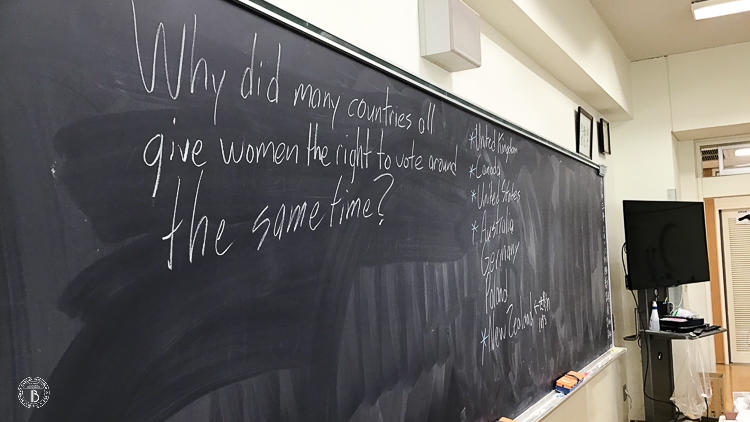 Why did many countries all
give women the right to vote around
the same time?
*United Kingdom
*Canada
*United States
*Australia
Germany
Poland
*New Zealand
B